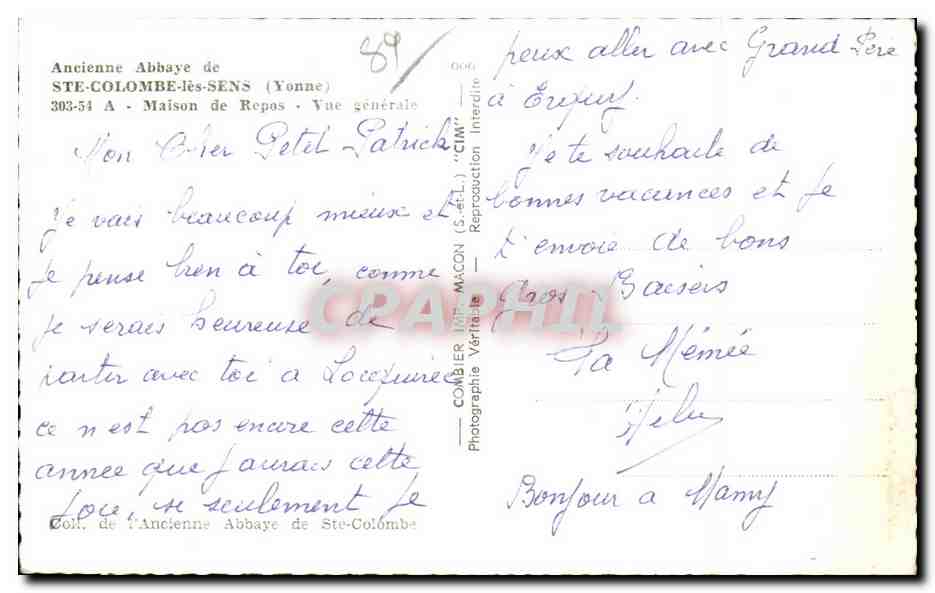 89
Ancienne Abbaye de
STE-COLOMBE-lès-SENS (Yonne)
303-54 A - Maison de Repos - Vue générale
Mon Cher Petit Patrick
Je vais beaucoup mieux et
Je pense bien à toi, comme
Je serais heureuse de
partir avec toi a Locquirec
ce n'est pas encore cette
année que J'aurais cette
Joie, si seulement Je
Coll. de l'Ancienne Abbaye de Ste-Colombe
COMBIER IMP. MACON (S.-et-L.) "CIM"
Photographie Véritable - Reproduction Interdite
peux aller avec Grand Père
à Erquy.
Je te souhaite de
bonnes vacances et Je
t'envoie de bons
Gros Baisers
Ta Mémée
Bonjour a Mamy
CPAPHIL